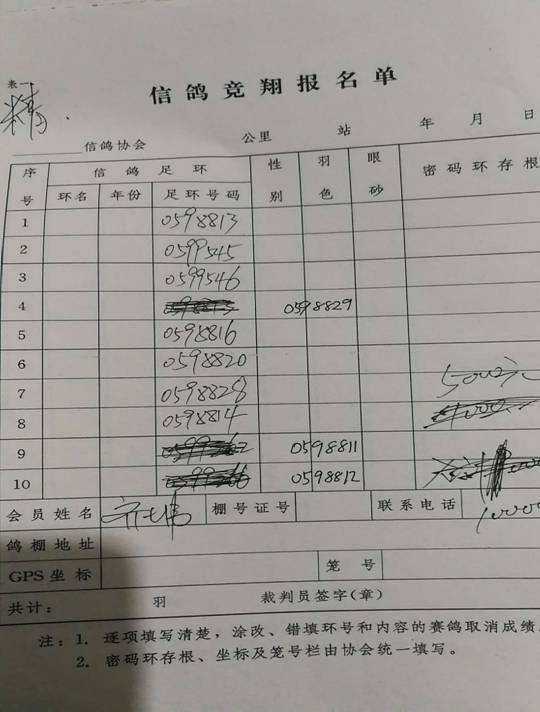 表一
信鸽竞翔报名单
信鸽协会 公里 站 年 月 日
序号 信鸽足环 性别 羽色 眼砂 密码环存根
环名 年份 足环号码
1 0598813
2 0599545
3 0599546
4 0598829
5 0598816
6 0598820
7 0598828
8 0598814
9 0598811
10 0598812
会员姓名 棚号证号 联系电话
鸽棚地址
GPS坐标 笼号
共计: 羽 裁判员签字(章)
注:1. 逐项填写清楚,涂改、错填环号和内容的赛鸽取消成绩
2. 密码环存根、坐标及笼号栏由协会统一填写。